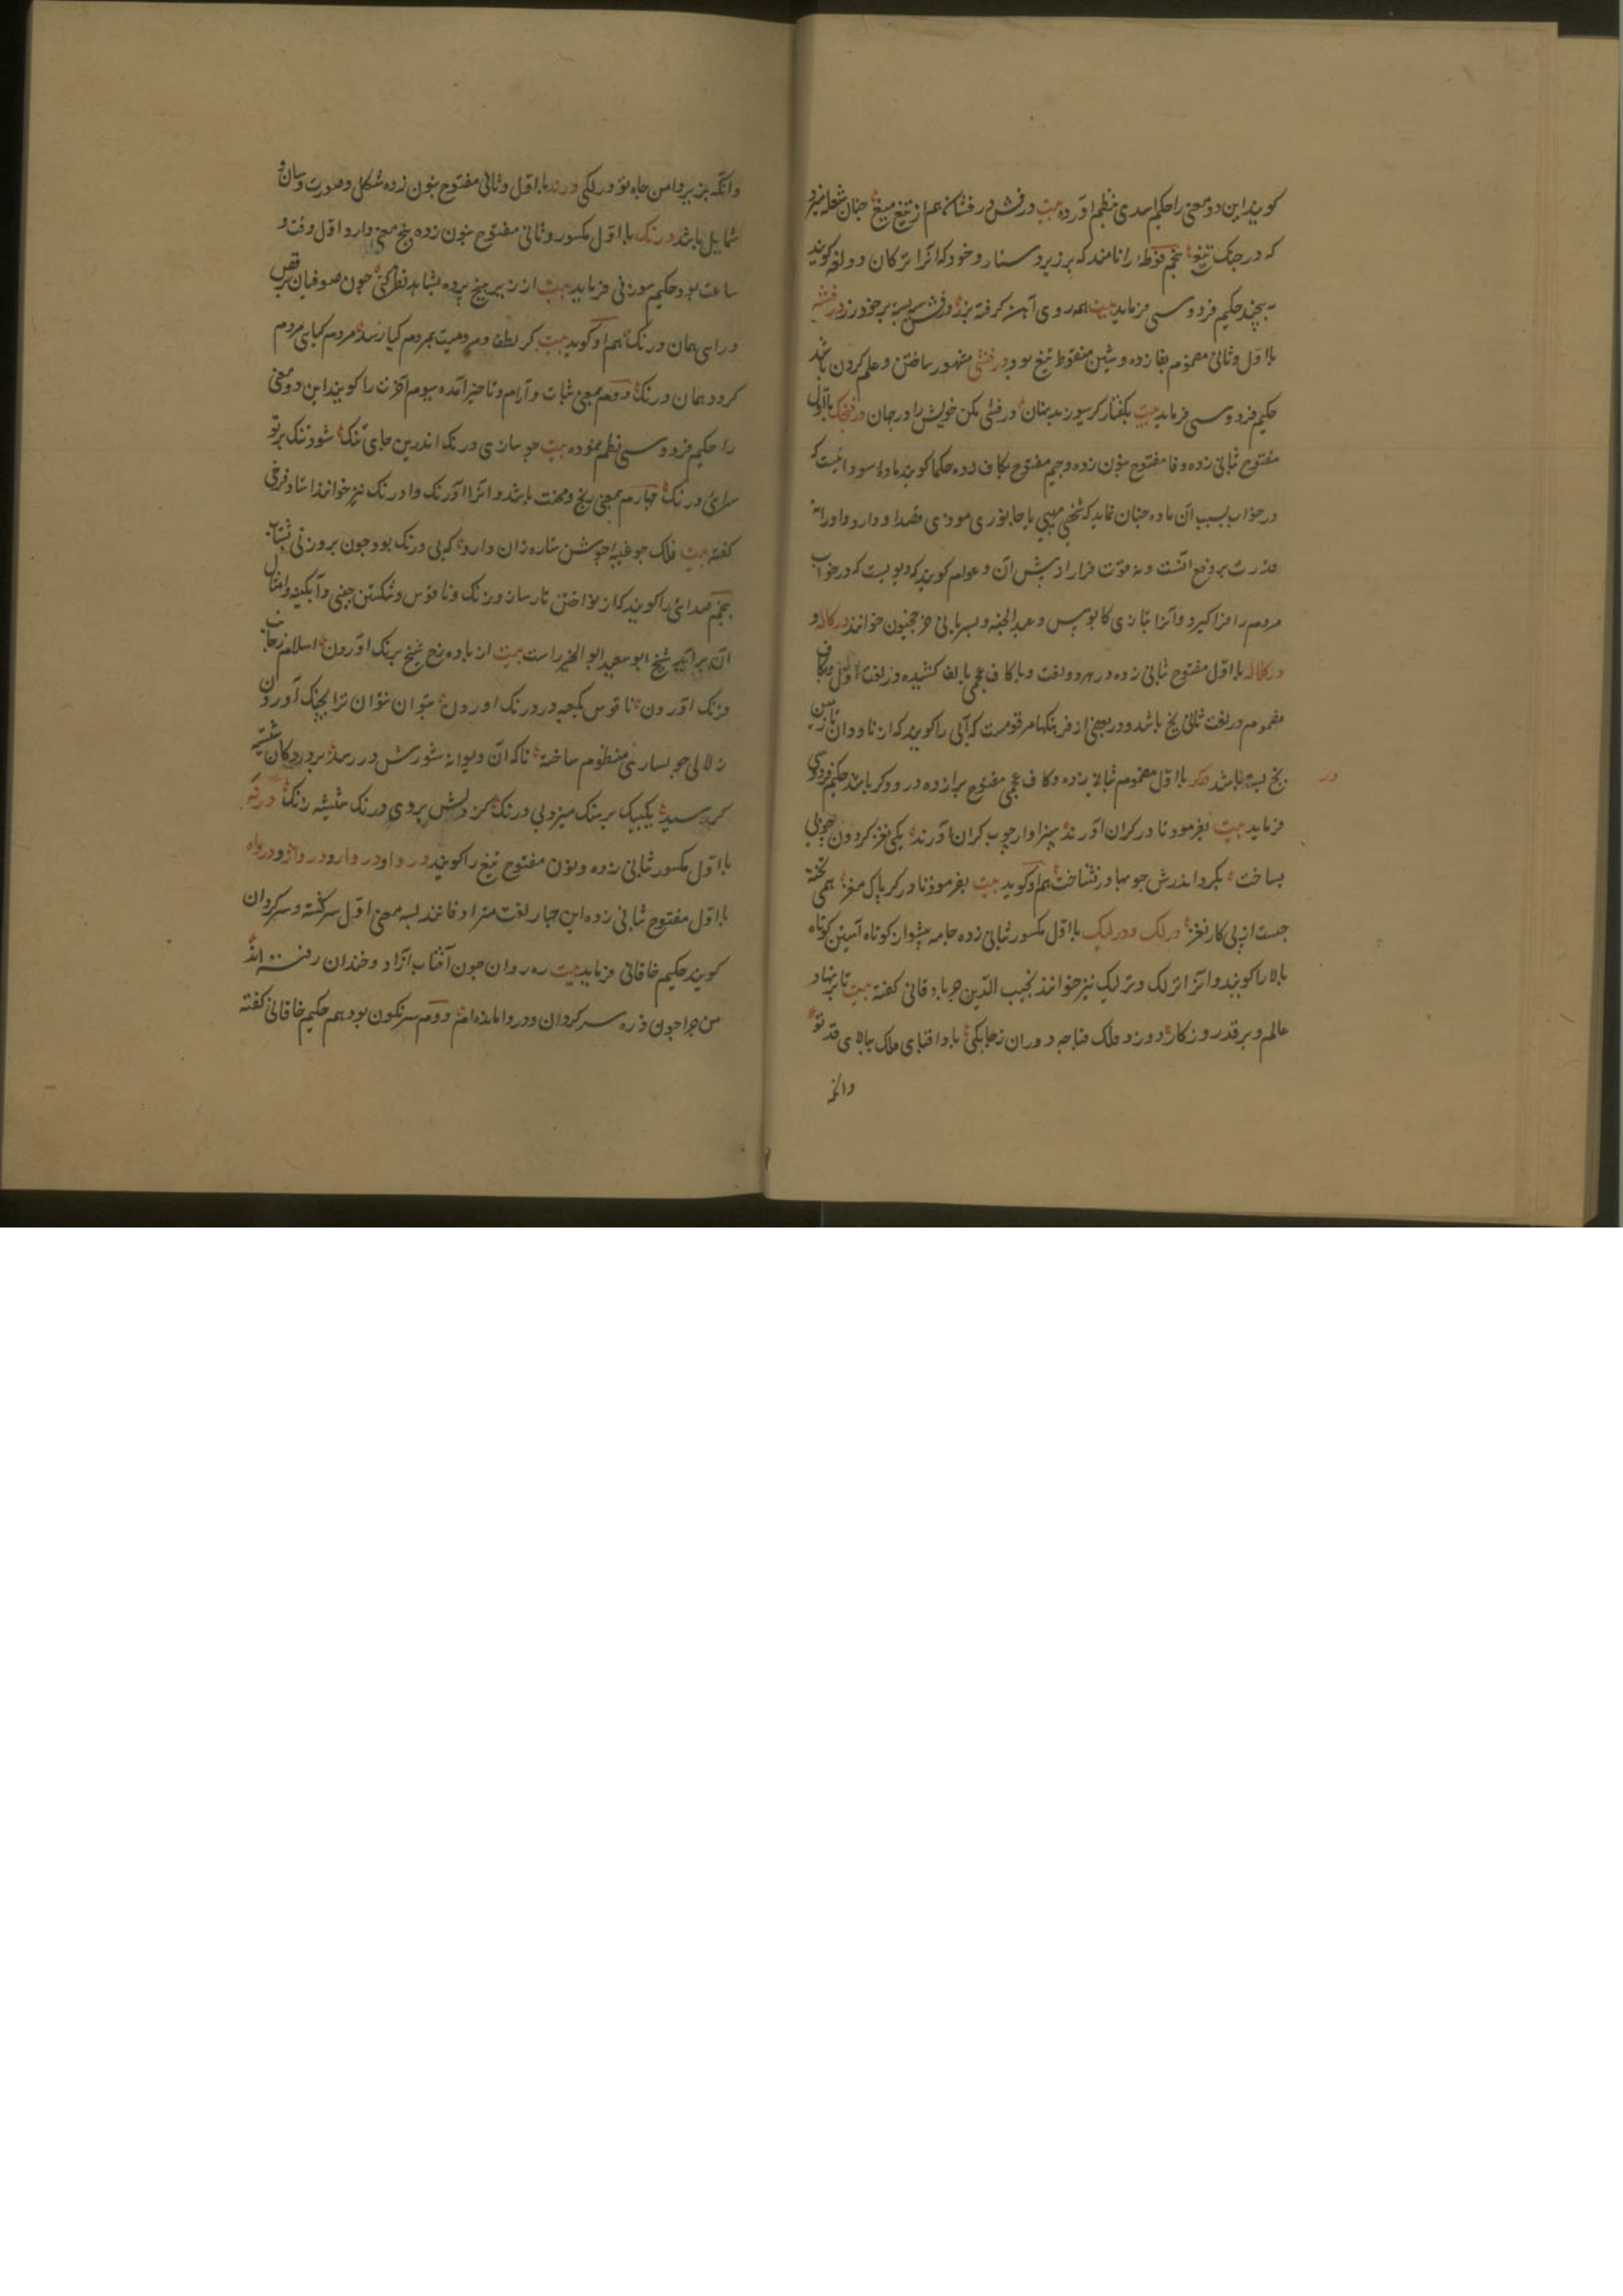 کویند این دو معنی را حکیم اسدی نظم آورده بیت درفش درفشان هم از تیغ میغ چنان شعله میزد
که در جنک تیغ پنجم فوطه را نامند که بر زبر دستار و خود که آنرا ترکان دولغه کویند
بپیچند حکیم فردوسی فرماید بیت همه روی آهن کرفته بزر درفش سیه بسته بر خود زر درفشه
با اول و ثانی مضموم بفا زده و شین منقوط تیغ بود درفشی مشهور ساختن و علم کردن باشد
حکیم فردوسی فرماید بیت بکفتار کرسیوز بدنهان درفشی مکن خویش را در جهان درفنجک با اول
مفتوح ثانی زده و فا مفتوح بنون زده و جیم مفتوح بکاف زده حکما کویند ماده سودائیست که
در خواب بسبب آن ماده چنان نماید که شخصی مهیبی یا جانوری موذی قصد او دارد و او را نه
قدرت بر دفع آنست و نه قوت فرار از پیش آن و عوام کویند که دیویست که در خواب
مردم را فرا کیرد و آنرا بتازی کابوس و عبد الجنه و بسریانی خرججیون خوانند درکاله و
درکلاله با اول مفتوح ثانی زده در هر دو لغت و با کاف عجمی بالف کشیده در لغت اول و کاف
مضموم در لغت ثانی یخ باشد و در بعضی از فرهنکها مرقومست که آبی را کویند که از ناودان تا زمین
یخ بسته باشد درکر با اول مضموم ثانی زده و کاف عجمی مفتوح برا زده درودکر باشد حکیم فردوسی
در
فرماید بیت بفرمود تا درکران آورند سزاوار چوب کران آورند یکی نغز کردون چوبی
بساخت بکرد اندرش جویها در نشاخت هم او کوید بیت بفرمود تا درکر پاک مغز همی تخته
جست از پی کار نغز درلک و درلیک با اول مکسور ثانی زده جامه پیشواز کوتاه آستین کوتاه
بالا را کویند و آنرا ترلک و ترلیک نیز خوانند نجیب الدین جرباد قانی کفته بیت تا بر نهاد
عالم و بر قدر روزکار دوزد فلک قباچه دوران ز چابکی بادا قبای ملک ببالای قد تو
وانکه
وانکه بزیر دامن جاه تو درلکی درند با اول و ثانی مفتوح بنون زده شکل و صورت و سان و
شمایل باشد درنک با اول مکسور و ثانی مفتوح بنون زده پنج معنی دارد اول وقت و
ساعت بود حکیم سوزنی فرماید بیت از زیر میخ پرده بشاید نظر کنی چون صوفیان برقص
درایی همان درنک هم او کوید بیت کر لطف و مردمیت بمردم کیا رسد مردم کیای مردم
کردد همان درنک دوم بمعنی ثبات و آرام و تاخیر آمده سیوم آخرت را کویند این دو معنی
را حکیم فردوسی نظم نموده بیت چو سازی درنک اندرین جای تنک شود تنک بر تو
سرای درنک چهارم بمعنی رنج و محنت باشد و آنرا آدرنک و ادرنک نیز خوانند استاد فرقی
کفته بیت فلک چو غیبه جوشن ستاره زان دارد که بی درنک بود چون بروزنی نشاب
پنجم صدائی را کویند که از نواختن تار ساز و زنک و ناقوس و شکستن چینی و آبکینه و امثال
آن برآید شیخ ابو سعید ابو الخیر راست بیت از باده رخ شیخ برنک آوردن اسلام ز جانب
فرنک آوردن ناقوس بکعبه در درنک آوردن بتوان نتوان ترا بچنک آوردن
زلالی خوانساری منظوم ساخته تا که آن دیوانه شورش در رسد بر در دکان شیشه
کر رسید یکبیک بر سنک میزد بی درنک کز دلش بردی درنک شیشه زنک درنه
با اول مکسور ثانی زده و نون مفتوح تیغ را کویند دروا و دروار و درواژ و درواه
با اول مفتوح ثانی زده این چهار لغت مترادفانند بسه معنی اول سرکشته و سرکردان
کویند حکیم خاقانی فرماید بیت ره روان چون آفتاب آزاد و خندان رفته اند
من چرا چون ذره سرکردان و دروا مانده ام دوم سرنکون بود هم حکیم خاقانی کفته